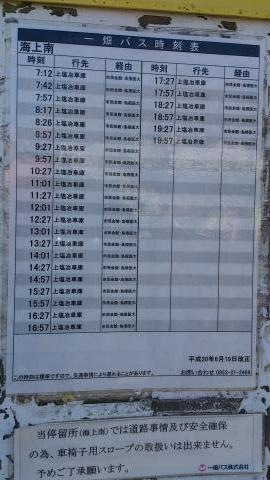 一畑バス時刻表
海上南
時刻 行先 経由 時刻 行先 経由
7:12 上塩冶車庫 17:27 上塩冶車庫
7:42 上塩冶車庫 17:57 上塩冶車庫
7:57 上塩冶車庫 18:27 上塩冶車庫
8:17 上塩冶車庫 18:57 上塩冶車庫
8:26 上塩冶車庫 19:27 上塩冶車庫
8:57 上塩冶車庫 19:57 上塩冶車庫
9:27 上塩冶車庫
9:57 上塩冶車庫
10:27 上塩冶車庫
11:01 上塩冶車庫
11:27 上塩冶車庫
12:01 上塩冶車庫
12:27 上塩冶車庫
13:01 上塩冶車庫
13:27 上塩冶車庫
14:01 上塩冶車庫
14:27 上塩冶車庫
14:57 上塩冶車庫
15:27 上塩冶車庫
15:57 上塩冶車庫
16:27 上塩冶車庫
16:57 上塩冶車庫
平成20年6月19日改正
この時刻は標準ですので、交通事情により遅れることがあります。 お問い合わせ 0853-21-2466
当停留所(海上南)では道路事情及び安全確保
の為、車椅子用スロープの取扱いは出来ません。
予めご了承願います。
一畑バス株式会社